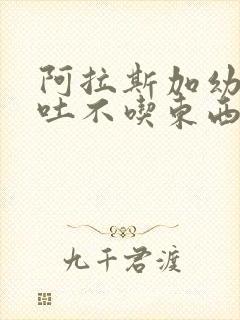 阿拉斯加幼
吐不喫東西
九千君渡